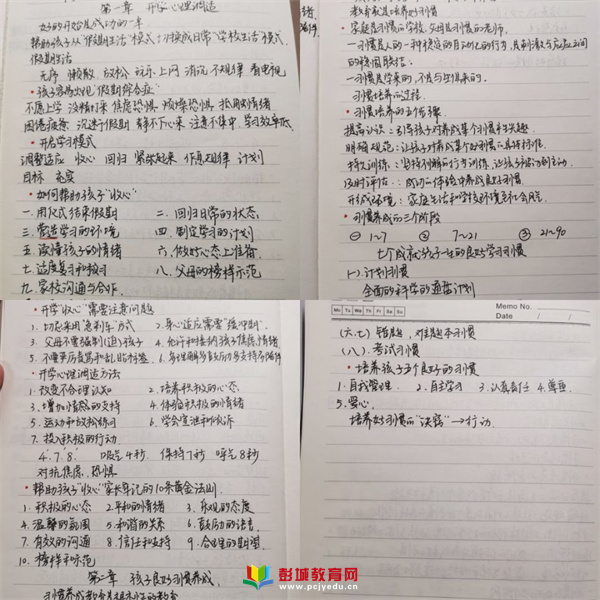 第一章 开学心理调适
好的开始是成功的一半
帮助孩子从“假期生活”模式切换成日常“学校生活”模式
假期生活
无序 懒散 放松 玩乐 上网 消沉 不规律 看电视
·孩子容易出现“假期综合症”
不愿上学 没精打采 焦虑恐惧 烦燥恐惧 抵触情绪
困倦疲惫 沉迷于假期 静不下心来 注意不集中 学习效率低
·开启学习模式
调整适应 收心 回归 紧张起来 作息规律 计划
目标 充实
·如何帮助孩子“收心”
一.用仪式结束假期 二.回归日常的状态
三.营造学习的环境 四.制定学习的计划
五.读懂孩子的情绪 六.做好心态上准备
七.适度复习和预习 八.父母的榜样示范
九.家校沟通与合作
教育就是培养好习惯
·家庭是习惯的学校,父母是习惯的老师。
一习惯是人的一种稳定的自动化的行为,是刺激与反应之间
的稳固联结;
一习惯是学来的,不是与生俱来的。
·习惯培养的过程
·习惯培养的五个步骤
提高认识:引导孩子对养成某个习惯产生兴趣
明确规范:让孩子对养成某个好习惯的具体标准
持久训练:坚持不懈的行为训练,让孩子由被动到主动
及时评估:成功的体验中养成良好习惯
形成环境:家庭生活和学校环境充和合风尚
·习惯养成的三个阶段
① 1~7 ② 7~21 ③ 21~90
七个成就孩子一生的良好学习习惯
(一)计划习惯
全面的科学的适当计划
·开学“收心”需要注意问题
1.切忌采用“急刹车”方式 2.身心适应需要“缓冲期”
3.父母不要强制(迫)孩子 4.允许和接纳孩子焦虑情绪
5.不要责历辱骂和乱贴标签
·开学心理调适方法
1.改变不合理认知 2.培养积极的心态
3.增加情感的支持 4.体验积极的情绪
5.运动和放松练习 6.学会宣泄和倾诉
7.投入积极的行动
4.7.8 吸气4秒 保持7秒 呼气8秒
对抗焦虑.恐惧
·帮助孩子“收心”家长牢记的10条黄金法则
1.积极的心态 2.平和的情绪 3.乐观的态度
4.温馨的氛围 5.和谐的关系 6.鼓励的语言
7.有效的沟通 8.信任和支持 9.合理的期望
10.榜样和示范
第二章 孩子良好习惯养成
习惯养成教育是根本性的教育
Mo Tu We Th Fr Sa Su
Memo No.
Date / /
(六.七)错题,对主题本习惯
(八).考试习惯
·培养孩子五个良好的习惯
1.自我管理 2.自主学习 3.认真责任 4.尊重
5.爱心
培养好习惯的“诀窍”→行动
彭城教育网
www.pcjyedu.cn